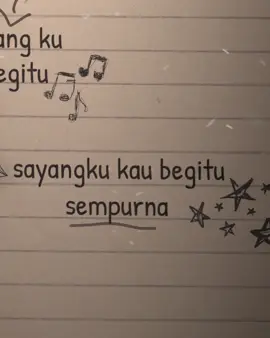 ang ku
egitu
sayangku kau begitu
sempurna